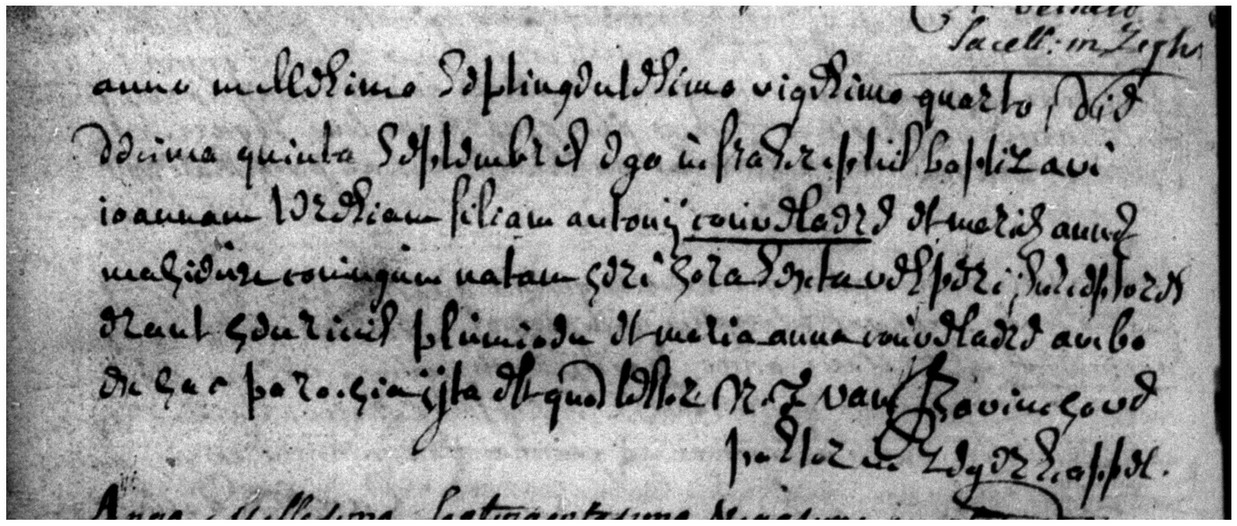 Sacell: in Zegh
anno millesimo septingentesimo vigesimo quarto, die
decima quinta septembris ego infrascriptus baptizavi
ioannam theresiam filiam antonij couvelaere et mariae annae
coniugum natam heri hora sexta vesperi; susceptores
erant henricus et maria anna couvelaere ambo
ex hac parochia ista est quod testor van Ravinchove
pastor in Zegerscappel.
Anno millesimo septingentesimo